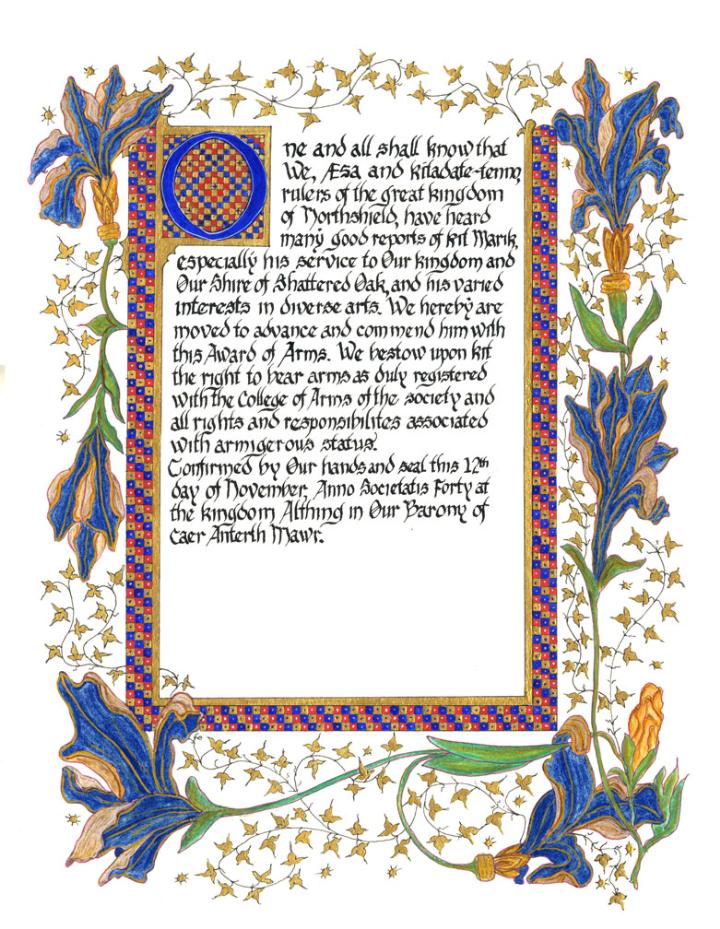 One and all shall know that
We, Æsa and Kitadate-tenno,
rulers of the great kingdom
of Northshield, have heard
many good reports of Kit Marik,
especially his service to Our kingdom and
Our Shire of Shattered Oak, and his varied
interests in diverse arts. We hereby are
moved to advance and commend him with
this Award of Arms. We bestow upon Kit
the right to bear arms as duly registered
with the College of Arms of the society and
all rights and responsibilites associated
with armigerous status.
Confirmed by Our hands and seal this 12th
day of November, Anno Societatis Forty at
the kingdom Althing in Our Barony of
Caer Anterth Mawr.